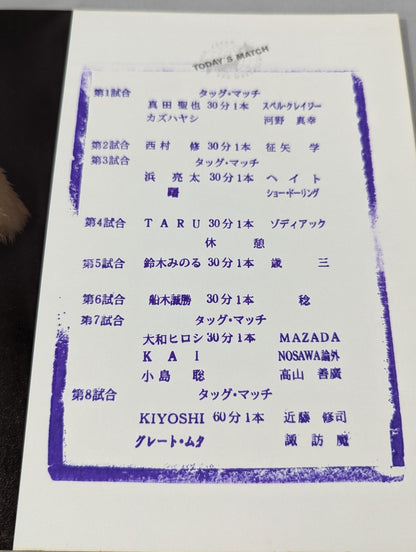 TODAY'S MATCH
第1試合 タッグ・マッチ
真田聖也 30分1本 スペル・クレイジー
カズハヤシ 河野真幸
第2試合 西村 修 30分1本 征矢 学
第3試合 タッグ・マッチ
浜 亮太 30分1本 ヘイト
曙 ショー・ドーリング
第4試合 TARU 30分1本 ゾディアック
休 憩
第5試合 鈴木みのる 30分1本 歳 三
第6試合 船木誠勝 30分1本 稔
第7試合 タッグ・マッチ
大和ヒロシ 30分1本 MAZADA
KAI NOSAWA論外
小島 聡 高山善廣
第8試合 タッグ・マッチ
KIYOSHI 60分1本 近藤修司
グレート・ムタ 諏訪魔